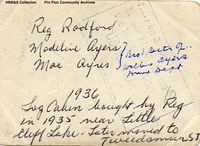 HBM&S Collection Flin Flon Community Archives
Reg Radford
Madeline Ayers
Mac Ayres
1936
Log Cabin bought by Reg
in 1935 near Little
Cliff Lake. Later moved to
Tweedsmuir St